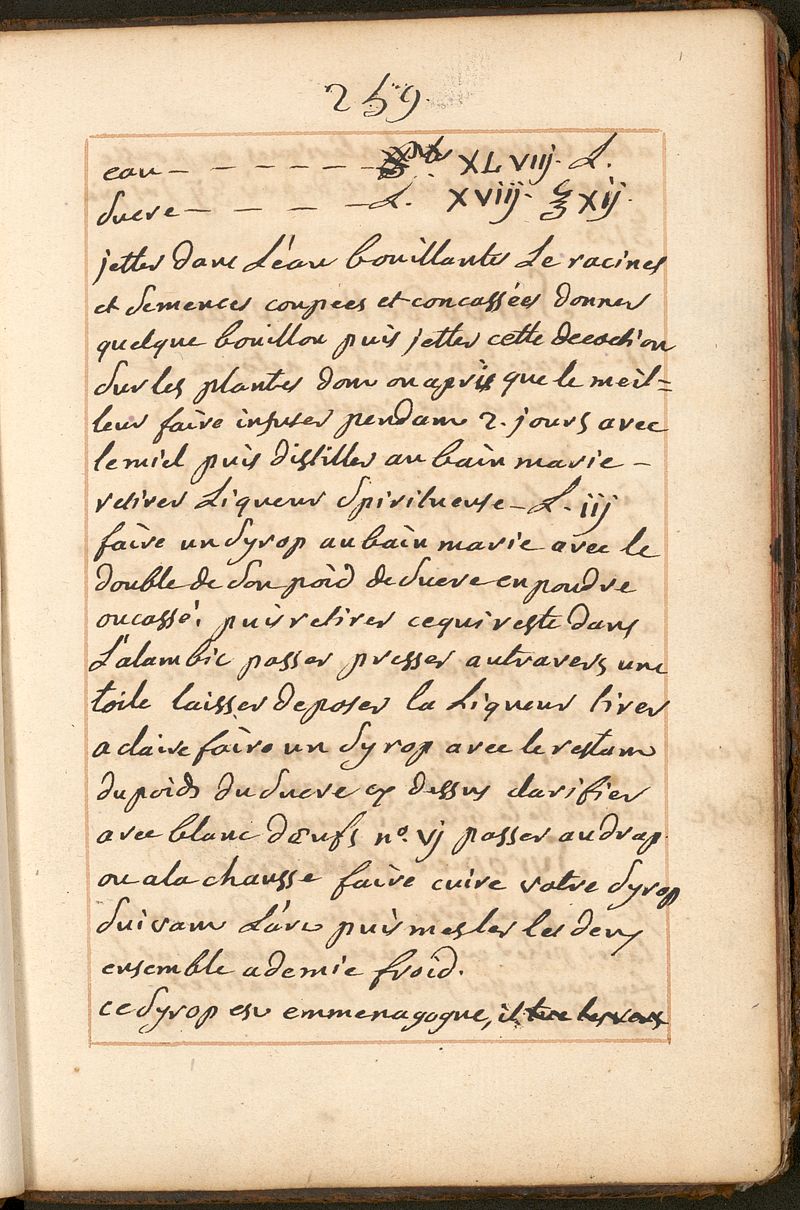 259.
eau — — — — — — XLViij. L.
sucre — — — — — L. XViij. ℥ Xij.
jetter dans L'éau bouillante Le racines
et semences coupees et concassées donner
quelque bouillon puis jetter cette decoction
sur les plantes dont on apris que le meil=
leur faire infuser pendant 2. jours avec
le miel puis distiller au bain marie —
retirer Liqueur Spiritueuse — L. iij
faire un Syrop au bain marie avec le
double de son poid de sucre en poudre
ou cassé. puis retirer ce qui reste dans
L'alambic passer presser autravers une
toile laisser deposer la Liqueur tirer
a claire faire un Syrop avec le restant
du poids du sucre cy dessus clarifier
avec blanc dœufs n.º vj passer au drap
ou a la chausse faire cuire votre Syrop
suivant L'art puis mesler les deux
ensemble a demie froid.
ce Syrop est emmenagogue, il tue les vers